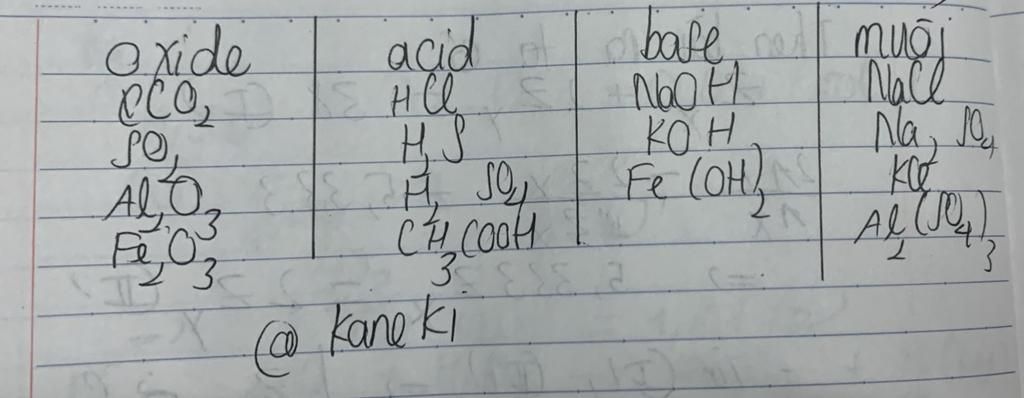 oxide acid base muối
CO2 HCl NaOH NaCl
SO2 H2S KOH Na2SO4
Al2O3 H2SO4 Fe(OH)2 KCl
Fe2O3 CH3COOH Al2(SO4)3
@ kaneki